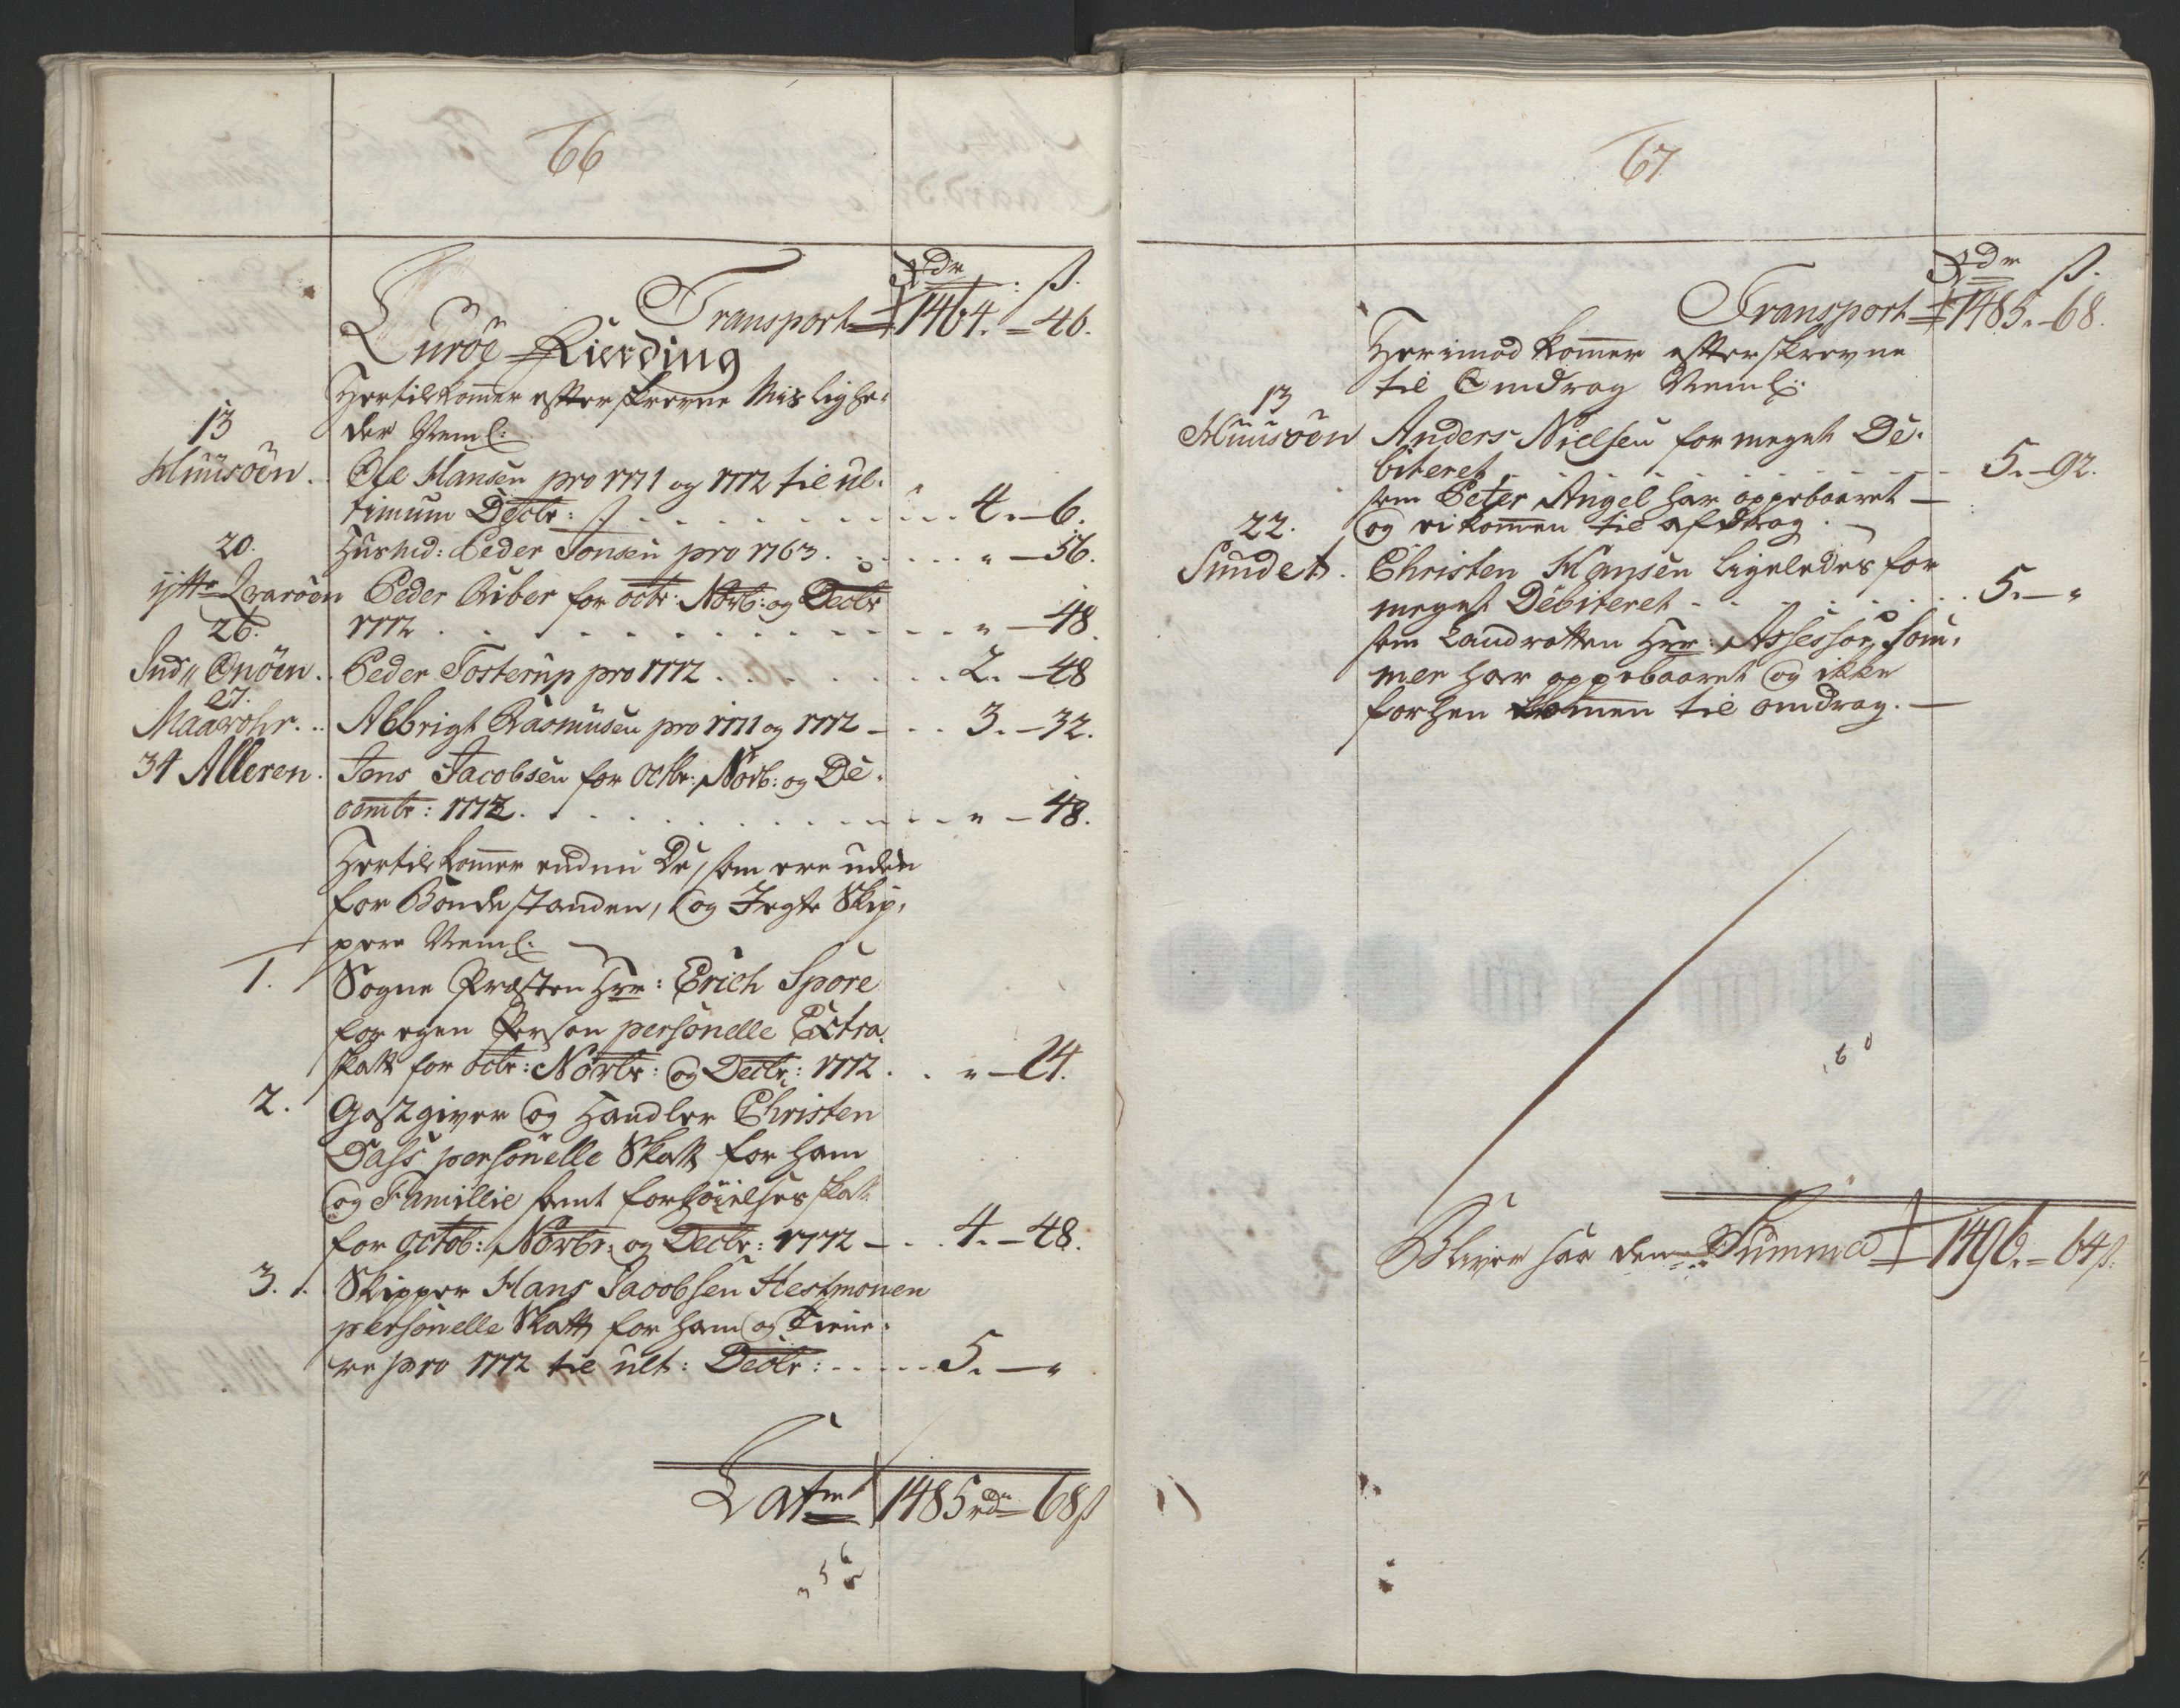 66
Rdr ß.
Transport 1464. – 46.
Lurøe Fierding
Hertil kommer efterskrevne Mislighe-
der Neml:
13
Huusöen. Ole Hansen pro 1771 og 1772 til ul-
timum Decbr: 4. – 6.
20. Husmd: Peder Jonsen pro 1763. " – 56.
ytter Qvaröen Peder Riber for octr: Novb: og Decbr
1772 " – 48.
26.
Ind" Onöen. Peder Tosterup pro 1772 2. – 48
27.
Maarohr. Abbrigt Rasmusen pro 1771 og 1772 – 3. – 32.
34 Alleren. Jens Jacobsen for Octbr: Novb: og De-
cembr: 1772. " – 48.
Hertil kommer endnu De, som ere uden
for Bondestanden, og Jegte Skip-
pere Neml:
1. Sogne Præsten Hrr: Erich Spore
for egen Person personelle Extra
skatt for octr: Novbr: og Decbr: 1772. " – 24.
2. Gastgiver og Handler Christen
Dass personelle Skatt for ham
og Famillie samt forhøielses skatt
for octob: Novbr: og Decbr: 1772 – 4. – 48.
3. Skipper Hans Jacobsen Hestmonen
personelle Skatt for ham og Tiene-
re pro 1772 til ult: Decbr: 5. – "
Latr 1485 rdr 68 ß
67
Rdr ß.
Transport 1485. – 68.
Herimod kommer efterskrevne
til Omdrag Neml:
13
Huusöen Anders Nielsen for meget De-
biteret 5. – 92.
som Peter Angel har oppebaaret –
22. og vi kommen til afdrag. –
Sundet. Christen Hansen ligeledes for
meget Debiteret 5. – "
som Landrotten Hrr: Assessor Som-
mer har oppebaaret og ikke
forhen kommen til omdrag. –
Bliver saa den Summa 1496. – 64 ß.